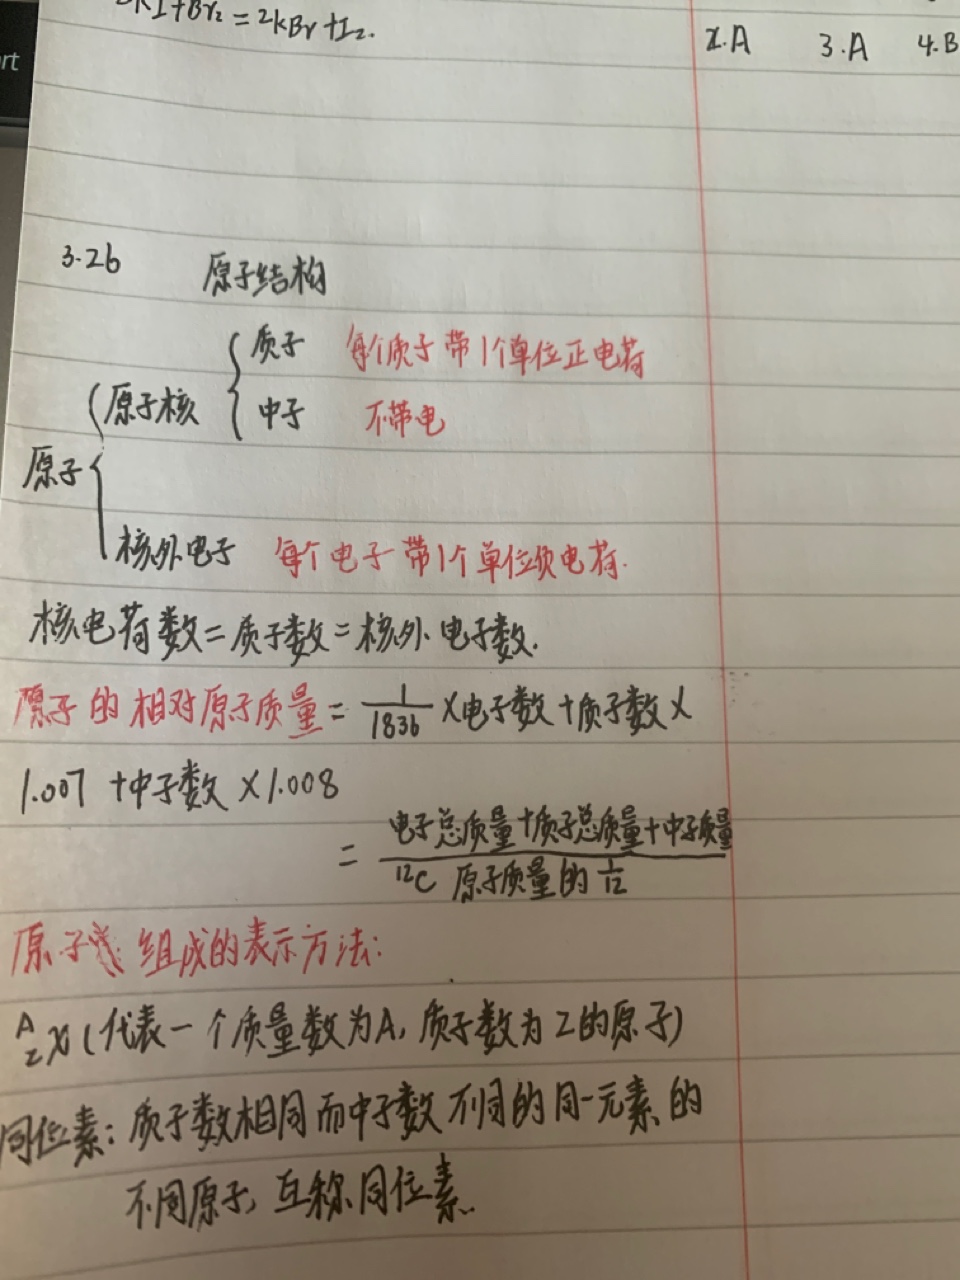 2KI+Br₂=2KBr+I₂.
2.A 3.A 4.B
3.26 原子结构
质子 每个质子带1个单位正电荷
原子核
中子 不带电
原子
核外电子 每个电子带1个单位负电荷.
核电荷数=质子数=核外电子数.
原子的相对原子质量=1/1836×电子数+质子数×
1.007+中子数×1.008
=电子总质量+质子总质量+中子质量/¹²C原子质量的1/12
原子 组成的表示方法:
ᴬ_Z X(代表一个质量数为A,质子数为Z的原子)
同位素:质子数相同而中子数不同的同一元素的
不同原子,互称同位素.